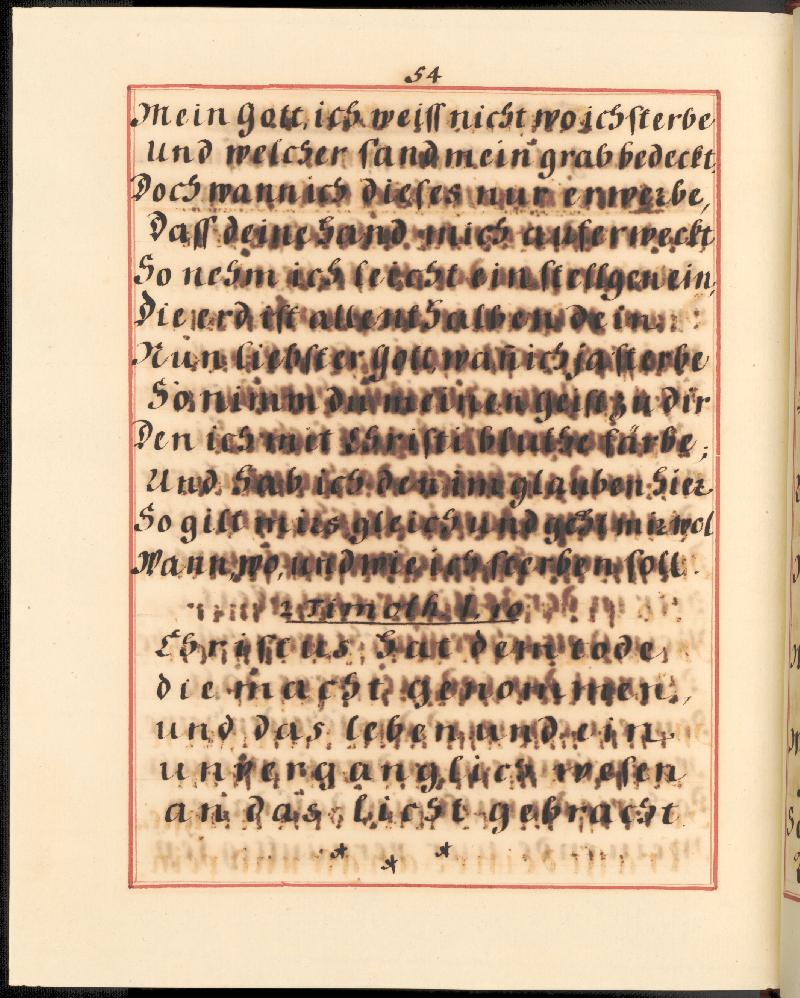 54
Mein Gott, ich weiſſ nicht wo ich ſterbe
Und welcher ſand mein grab bedeckt,
Doch wann ich dieſes nur erwerbe,
Daſſ deine hand mich auferweckt
So nehm ich leicht ein ſtellgen ein,
Die erd iſt allenthalben dein.
Nun liebſter Gott, wañ ich ja ſterbe
So nimm du meinen geiſt zu dir
Den ich mit Chriſti bluthe färbe;
Und hab ich den im glauben hier
So gilt mirs gleich und geht mir wol
Wann, wo, und wie ich ſterben ſoll.
2 Timoth. 1, 10
Chriſtus hat dem tode
die macht genommen,
und das leben und ein
unverganglich weſen
an das licht gebracht
* * *